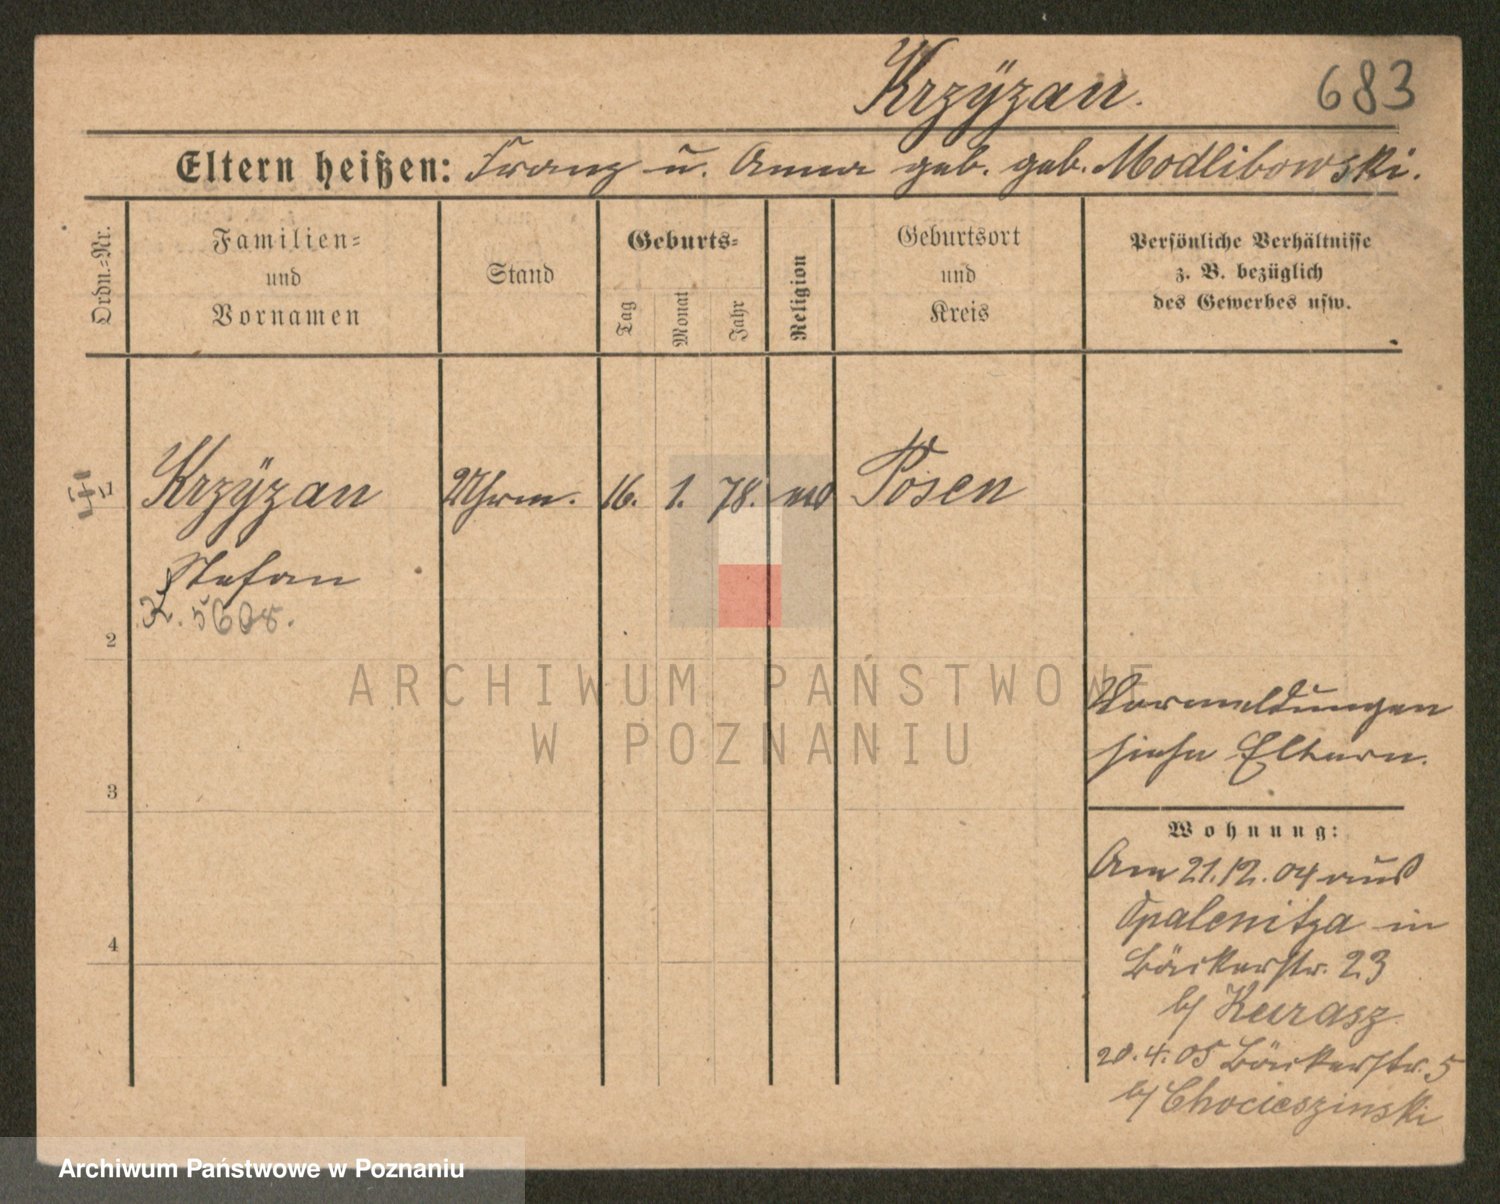 Krzÿzan. 683
Eltern heißen: Franz u. Anna geb. geb. Modlibowski.
Ordn.-Nr.
Familien-
und
Vornamen
Stand
Geburts-
Tag
Monat
Jahr
Religion
Geburtsort
und
Kreis
Persönliche Verhältnisse
z. B. bezüglich
des Gewerbes usw.
1 Krzÿzan Uhrm. 16. 1. 78. Posen
Stefan
2
3
4
Vormeldungen
siehe Eltern.
Wohnung:
Am 21.12.04 aus
Opalenitza in
Bäckerstr. 23
b/ Kurasz
20.4.05 Bäckerstr. 5
b/ Chocieszinski
ARCHIWUM PAŃSTWOWE
W POZNANIU
Archiwum Państwowe w Poznaniu